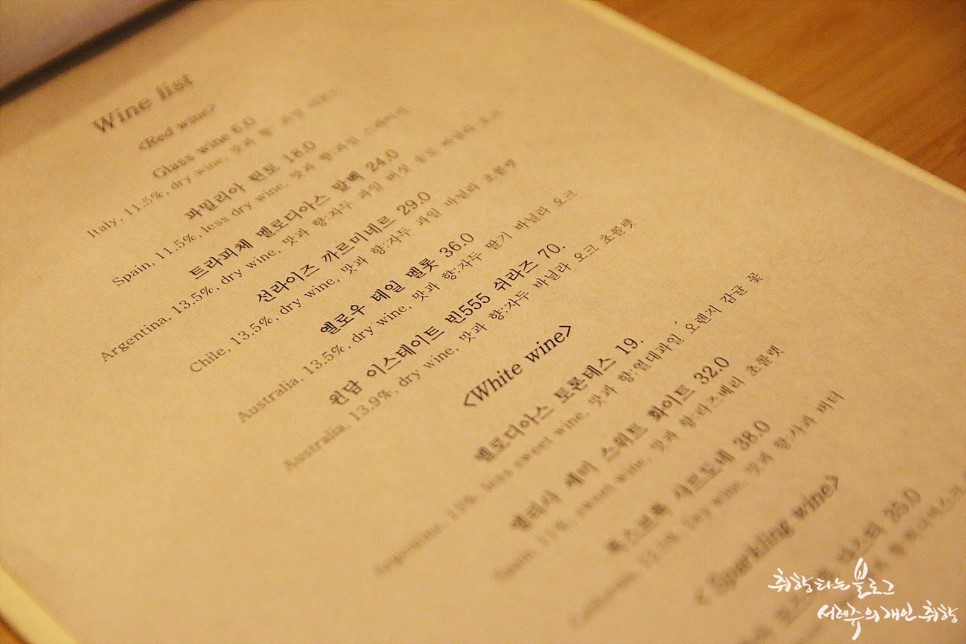 Wine list
<Red wine>
Glass wine 6.0
Italy, 11.5%, dry wine, 맛과 향 과일
파밀리아 틴토 18.0
Spain, 11.5%, less dry wine, 맛과 향:과일
트라피체 멜로디아스 말벡 24.0
Argentina, 13.5%, dry wine, 맛과 향:자두 과일 버섯 송로 바닐라 오크
선라이즈 까르미네르 29.0
Chile, 13.5%, dry wine, 맛과 향:자두 과일 바닐라 초콜렛
옐로우 테일 멜롯 36.0
Australia, 13.5%, dry wine, 맛과 향:자두 딸기 바닐라 오크
윈담 이스테이트 빈555 쉬라즈 70.
Australia, 13.9%, dry wine, 맛과 향:자두 바닐라 오크 초콜렛
<White wine>
멜로디아스 토론테스 19.
Argentine, 13%, less sweet wine, 맛과 향:열대과일 오렌지 감귤 꽃
스위트 화이트 32.0
Spain, 11%, sweet wine, 맛과 향:라즈베리 초콜렛
폭스브룩 샤르도네 38.0
dry wine, 맛과 향:사과 버터
<Sparkling wine>
35.0
취향타는 블로그
서레쥬의 개인 취향